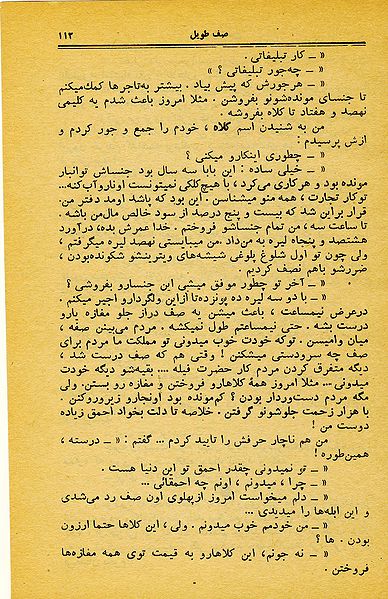 صف طویل ۱۱۳
« ــ کار تبلیفاتی .
« ــ چه‌جور تبلیفاتی ؟ »
« ــ هرجورش که پیش بیاد . بیشتر به‌تاجرها کمك‌میکنم
تا جنسای مونده‌شونو بفروشن . مثلا امروز باعث شدم یه کلیمی
نهصد و هفتاد تا کلاه بفروشه .
من به شنیدن اسم کلاه ، خودم را جمع و جور کردم و
ازش پرسیدم :
« ــ چطوری اینکارو میکنی ؟
« ــ خیلی ساده : این بابا سه سال بود جنساش توانبار
مونده بود و هرکاری می‌کرد ، با هیچ‌کلکی نمیتونست اوناروآب‌کنه...
توکار تجارت ، همه منو میشناسن . این بود که باشد اومد دفتر من.
قرار براین شد که بیست و پنج درصد از سود خالص مال‌من باشه .
تا ساعت سه ، من تمام جنساشو فروختم . خدا عمرش بده، درآورد
هشتصد و پنجاه لیره به من‌داد .من میبایستی نهصد لیره میگرفتم ،
ولی چون تو اول شلوغ پلوغی شیشه‌های ویترینشو شکونده‌بودن ،
ضررشو باهم نصف کردیم .
« ــ آخر تو چطور موفق میشی این جنسارو بفروشی ؟
« ــ با دو سه لیره ده پونزده‌تا ازاین ولگردارو اجیر میکنم .
درعرض نیمساعت ، باعث میشن یه صف دراز جلو مغازه یارو
درست بشه . حتی نیمساعتم طول نمیکشه . مردم می‌بینن صفه ،
میان وامیسن . توکه خودت خوب میدونی تو مملکت ما مردم برای
صف چه سرودستی میشکنن ! وقتی هم که صف درست شد ،
دیگه متفرق کردن مردم کار حضرت فیله .... بقیه‌شو دیگه خودت
میدونی ... مثلا امروز همهٔ کلاهارو فروختن و مفازه رو بستن. ولی
مگه مردم دست‌وردار بودن ؟ کم‌مونده بود اونجارو زیروروکنن .
با هزار زحمت جلوشونو گرفتن . خلاصه تا دلت بخواد احمق زیاده
دوست من !
من هم ناچار حرفش را تایید کردم ... گفتم : « ــ درسته ،
همین‌طوره !
« ــ تو نمیدونی چقدر احمق تو این دنیا هست .
« ــ چرا ، میدونم ، اونم چه احمقائی ...
« ــ دلم میخواست امروز ازپهلوی اون صف رد می‌شدی
و این ابله‌ها را میدیدی ...
« ــ من خودمم خوب میدونم . ولی ، این کلاها حتما ارزون
بودن . ها ؟
« ــ نه جونم، این کلاهارو به قیمت توی همه مفازه‌ها
فروختن .